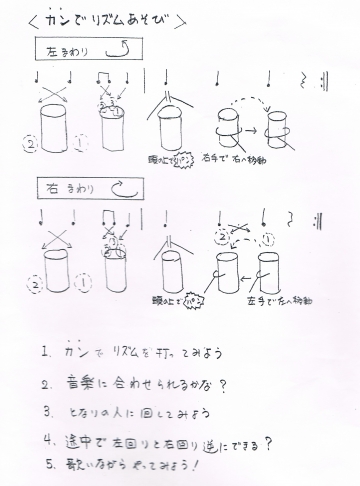 〈カンでリズムあそび〉
左まわり
② ①
② ①
頭の上でパン 右手で右へ移動
右まわり
② ①
② ①
② ①
頭の上でパン 左手で左へ移動
1. カンでリズムを打ってみよう
2. 音楽に合わせられるかな?
3. となりの人に回してみよう
4. 途中で左回りと右回り逆にできる?
5. 歌いながらやってみよう!